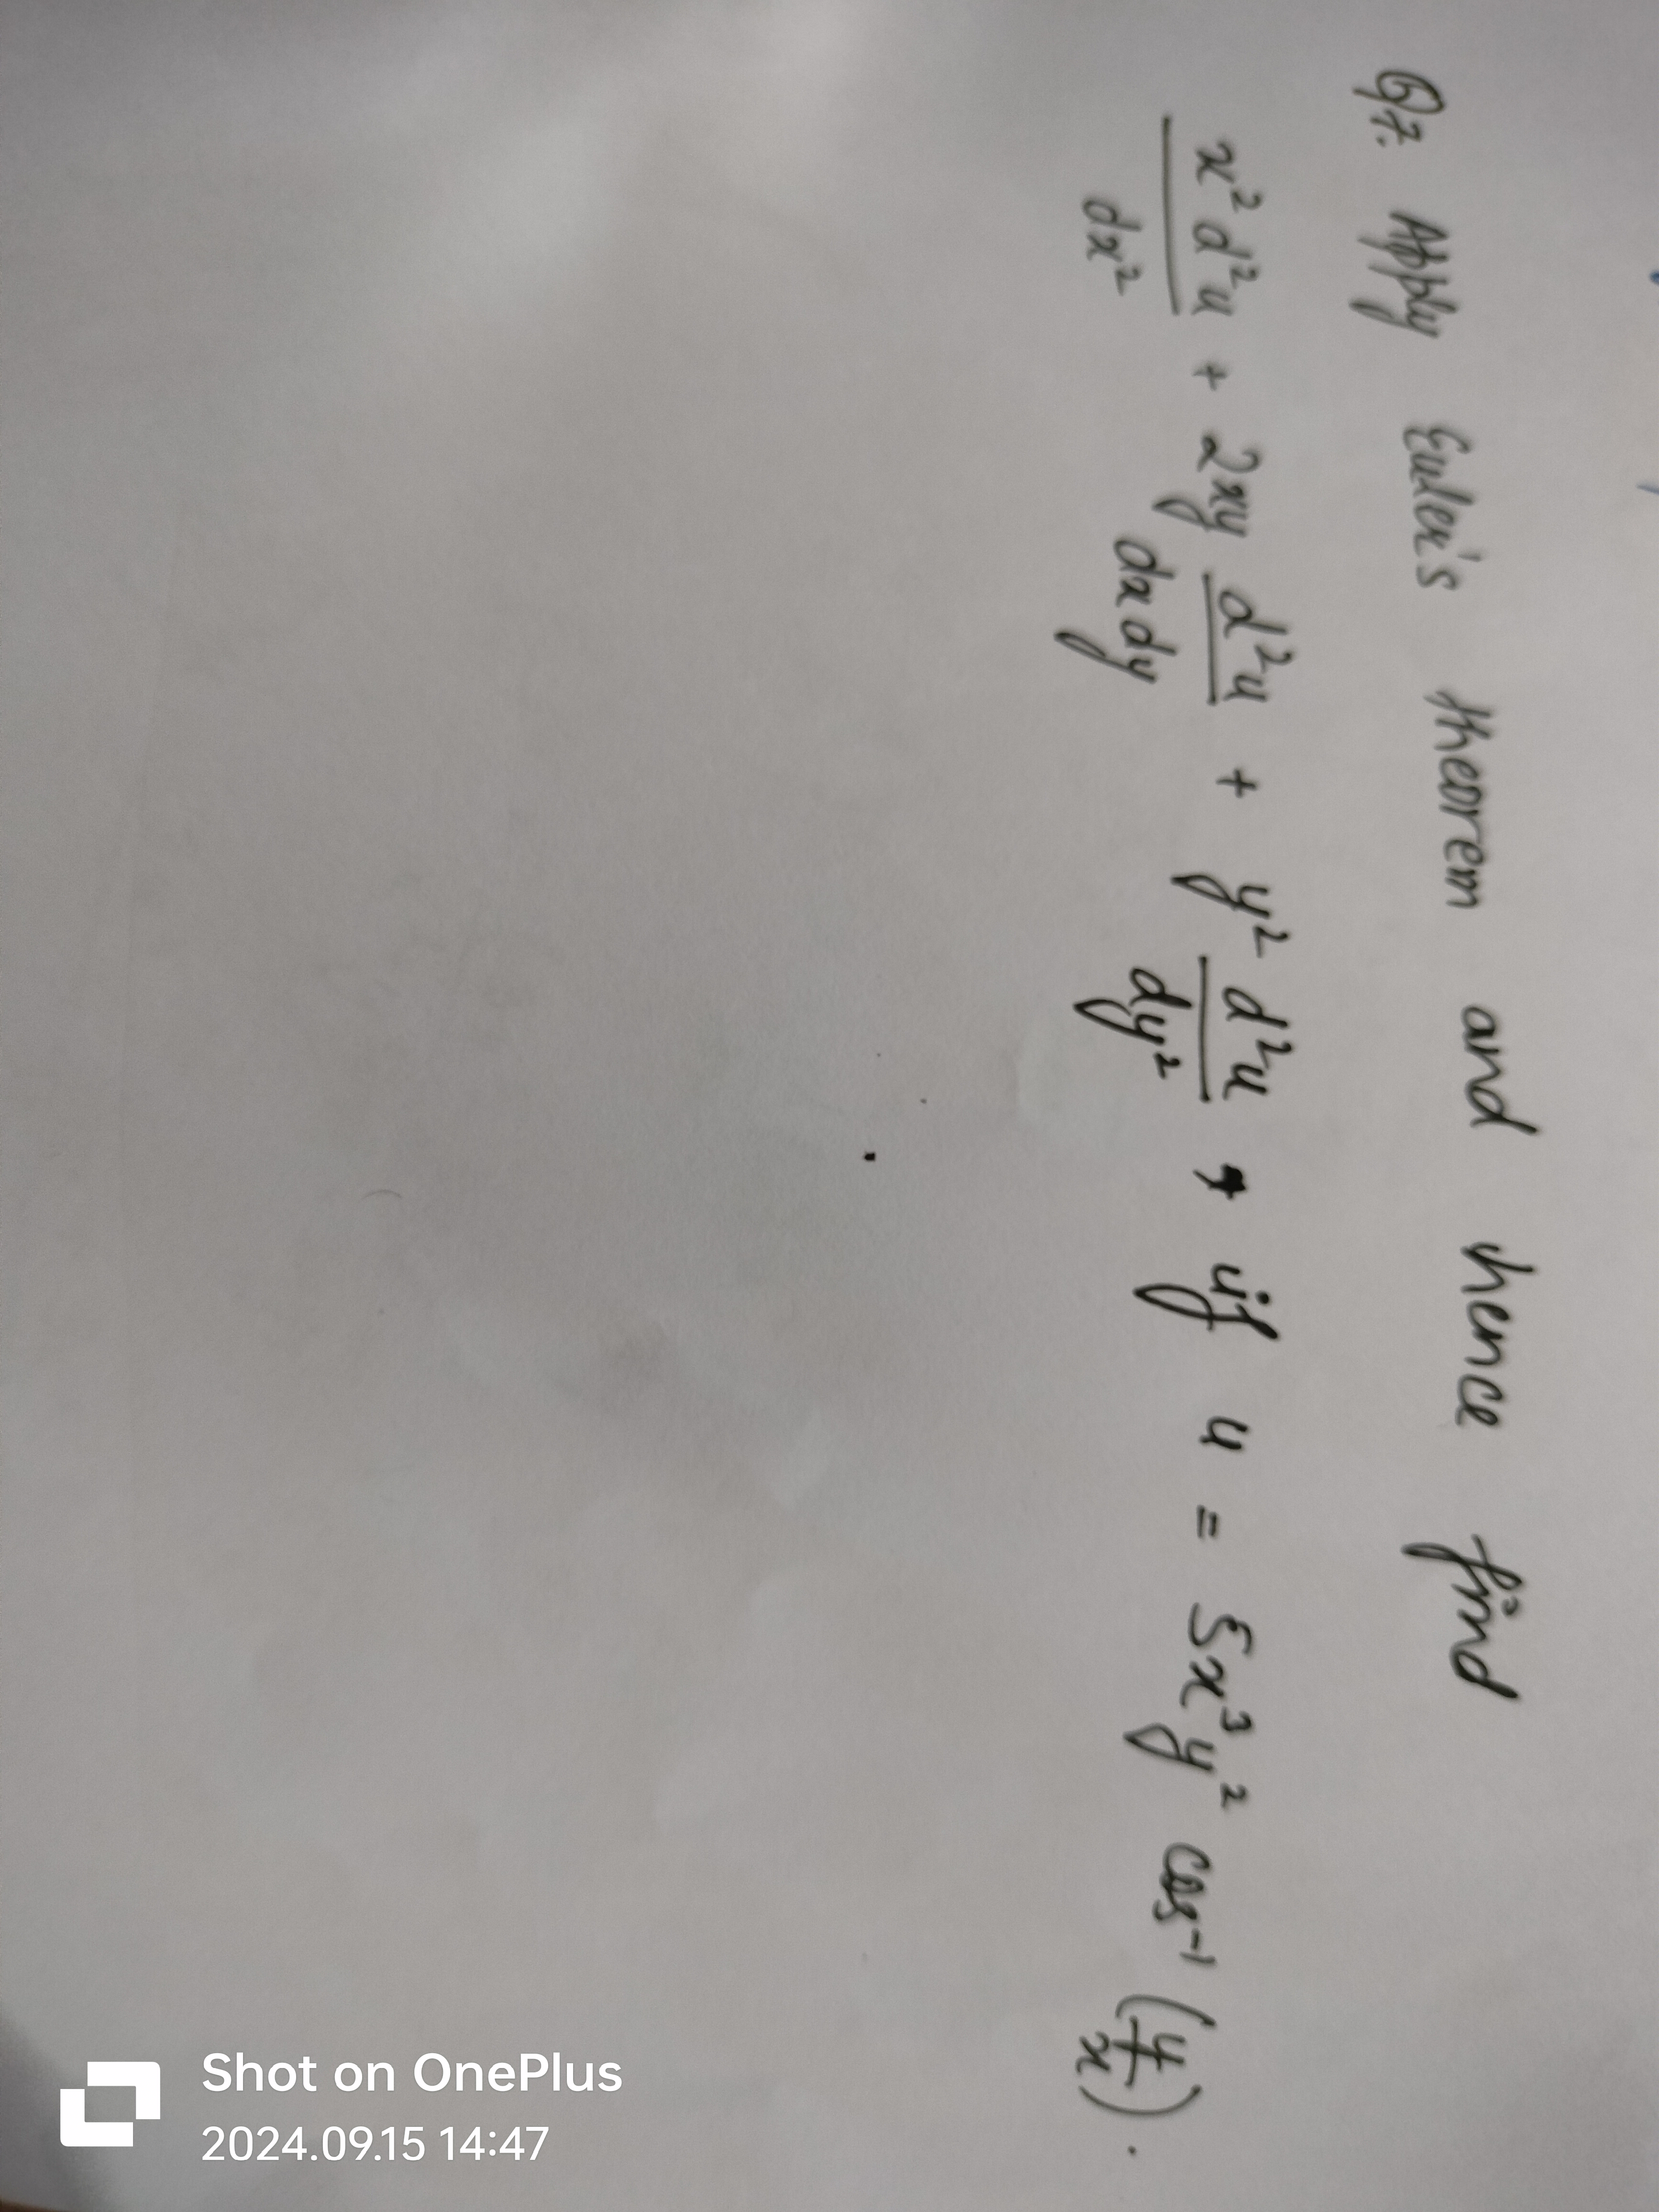 Q7. Apply Euler's theorem and hence find
x² d²u / dx² + 2xy d²u / dxdy + y² d²u / dy² , if u = 5x³y² cos⁻¹ (y/x).
Shot on OnePlus
2024.09.15 14:47